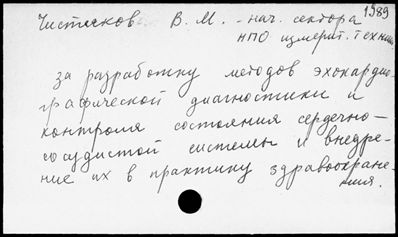 1989
Чистяков В. М. - нач. сектора
НПО измерит. техники
за разработку методов эхокардио-
графической диагностики и
контроля состояния сердечно-
сосудистой системы и внедре-
ние их в практику здравоохране-
ния.